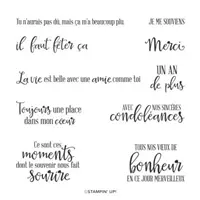 Tu n'aurais pas dû, mais ça m'a beaucoup plu.
JE ME SOUVIENS
il faut fêter ça
Merci
La vie est belle avec une amie comme toi
UN AN
de plus
Toujours une place
dans mon cœur
AVEC NOS SINCÈRES
condoléances
Ce sont ces
moments
dont le souvenir nous fait
sourire
TOUS NOS VŒUX DE
bonheur
EN CE JOUR MERVEILLEUX
© STAMPIN' UP!